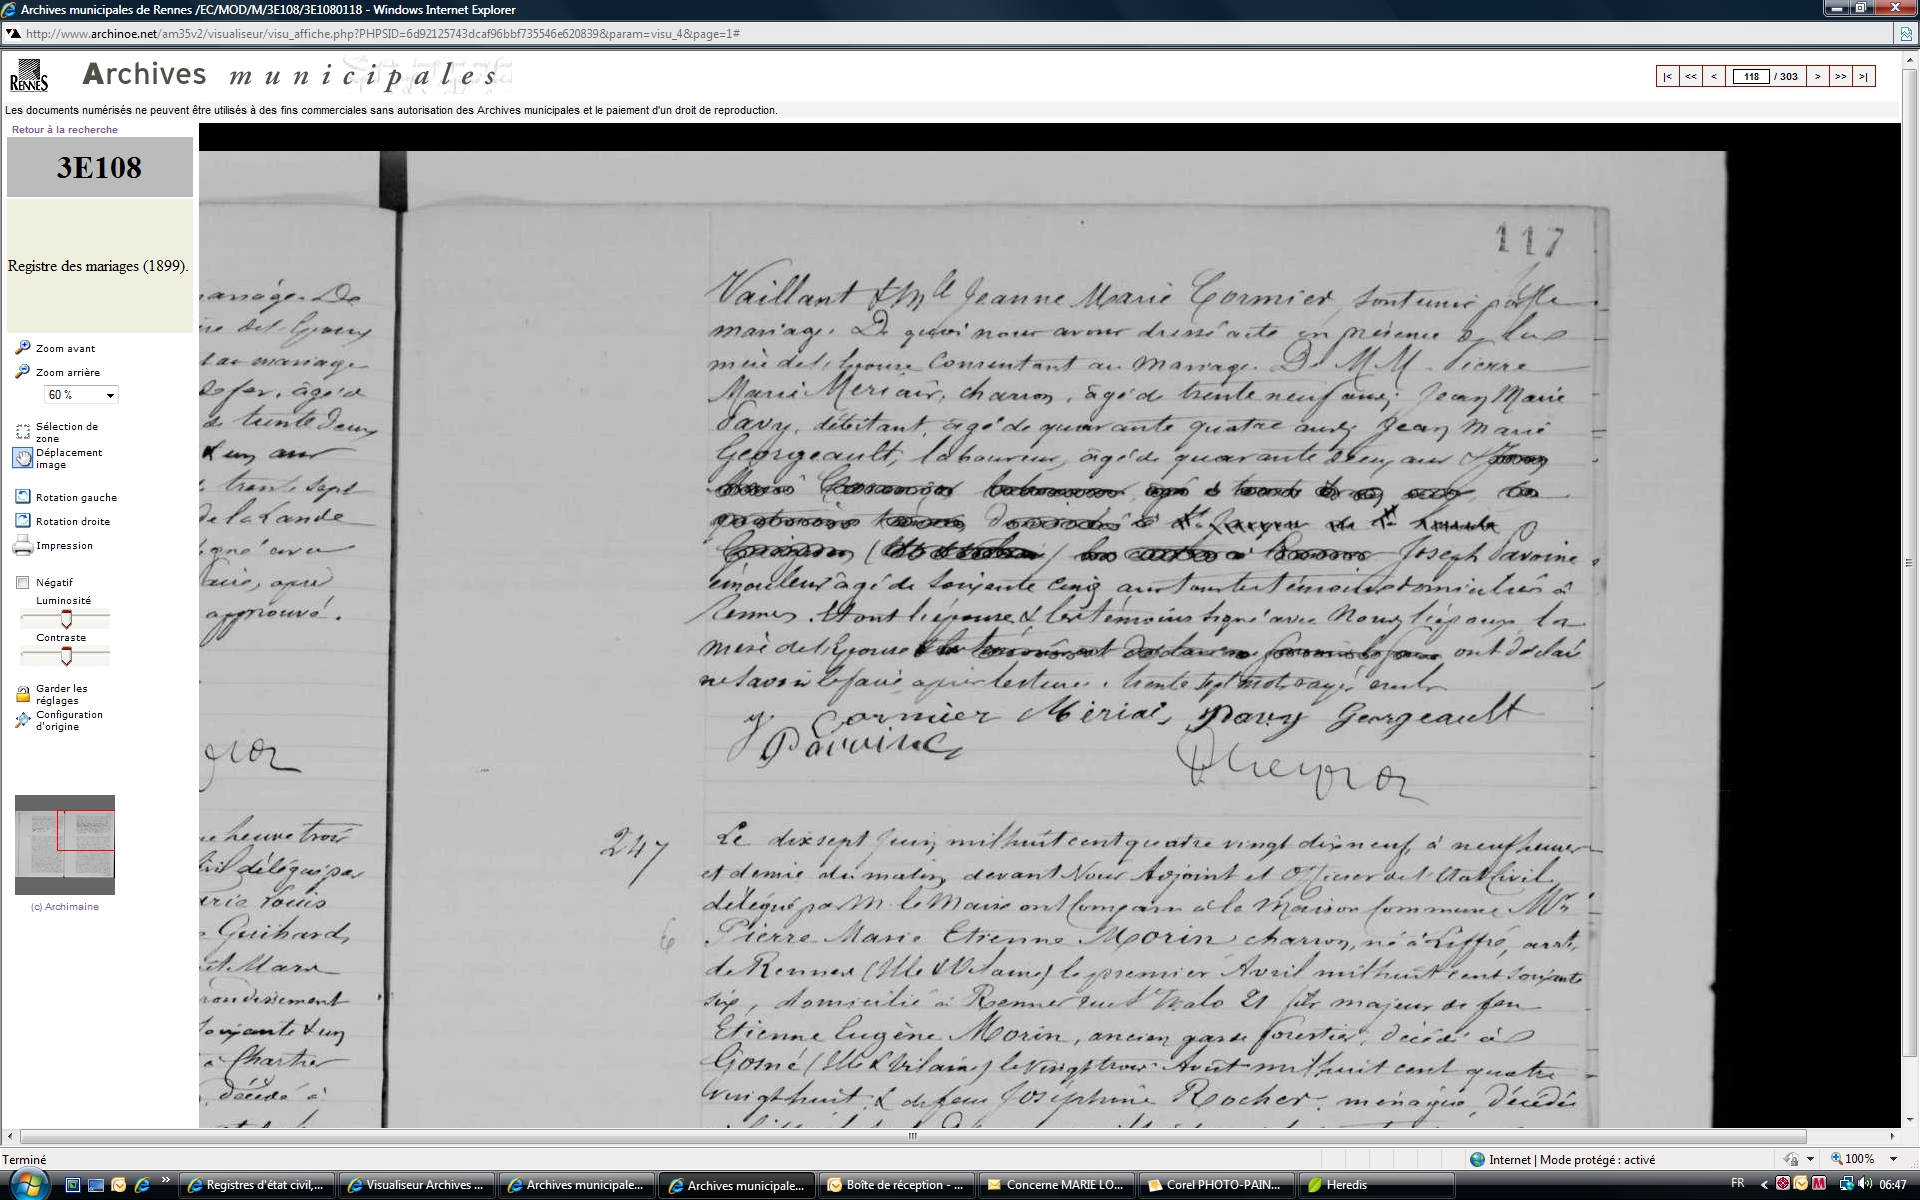 Archives municipales de Rennes /EC/MOD/M/3E108/3E1080118 - Windows Internet Explorer
http://www.archinoe.net/am35v2/visualiseur/visu_affiche.php?PHPSID=6d92125743dcaf96bbf735546e620839&param=visu_4&page=1#
RENNES
Archives municipales
|< << < 118 / 303 > >> >|
Les documents numérisés ne peuvent être utilisés à des fins commerciales sans autorisation des Archives municipales et le paiement d'un droit de reproduction.
Retour à la recherche
3E108
Registre des mariages (1899).
Zoom avant
Zoom arrière
60 %
Sélection de
zone
Déplacement
image
Rotation gauche
Rotation droite
Impression
Négatif
Luminosité
Contraste
Garder les
réglages
Configuration
d'origine
(c) Archimaine
mariage. De
au mariage
de fer, âgé de
de trente deux
& un ans
trente sept
de la Lande
approuvé.
neuf heures trois
civil délégué par
Marie Louis
Guihard,
et Marie
arrondissement
soixante & un
à Chartres
décédé à
117
Vaillant & Mlle Jeanne Marie Cormier, sont unis par le
mariage. De quoi nous avons dressé acte en présence de la
mère de l'épouse consentant au mariage. De MM. Pierre
Marie Mériais, charron, âgé de trente neuf ans; Jean Marie
Davy, débitant, âgé de quarante quatre ans; Jean Marie
Georgeault, laboureur, âgé de quarante deux ans &
Joseph Pavoine
émouleur âgé de soixante cinq ans tous témoins domiciliés à
Rennes. Et ont l'épouse & les témoins signé avec Nous, l'époux la
mère de l'épouse ont déclaré
ne savoir le faire, après lecture. trente sept mots rayés nuls
J Cormier Mériais Davy Georgeault
Pavoine
247
6
Le dix sept Juin mil huit cent quatre vingt dix neuf, à neuf heures
et demie du matin, devant Nous Adjoint et Officier de l'Etat Civil
délégué par M. le Maire ont comparu à la Maison Commune Mr
Pierre Marie Etienne Morin charron, né à Liffré, arrt.
de Rennes (Ille & Vilaine) le premier Avril mil huit cent soixante
six, domicilié à Rennes rue St Malo 21 fils majeur de feu
Etienne Eugène Morin, ancien garde forestier, décédé à
Gosné (Ille & Vilaine) le vingt trois Août mil huit cent quatre
vingt huit, & de feue Joséphine Rocher, ménagère, décédée
Terminé
Internet | Mode protégé : activé
100%
Registres d'état civil,...
Visualiseur Archives ...
Archives municipale...
Archives municipale...
Boîte de réception - ...
Concerne MARIE LO...
Corel PHOTO-PAIN...
Heredis
FR
06:47